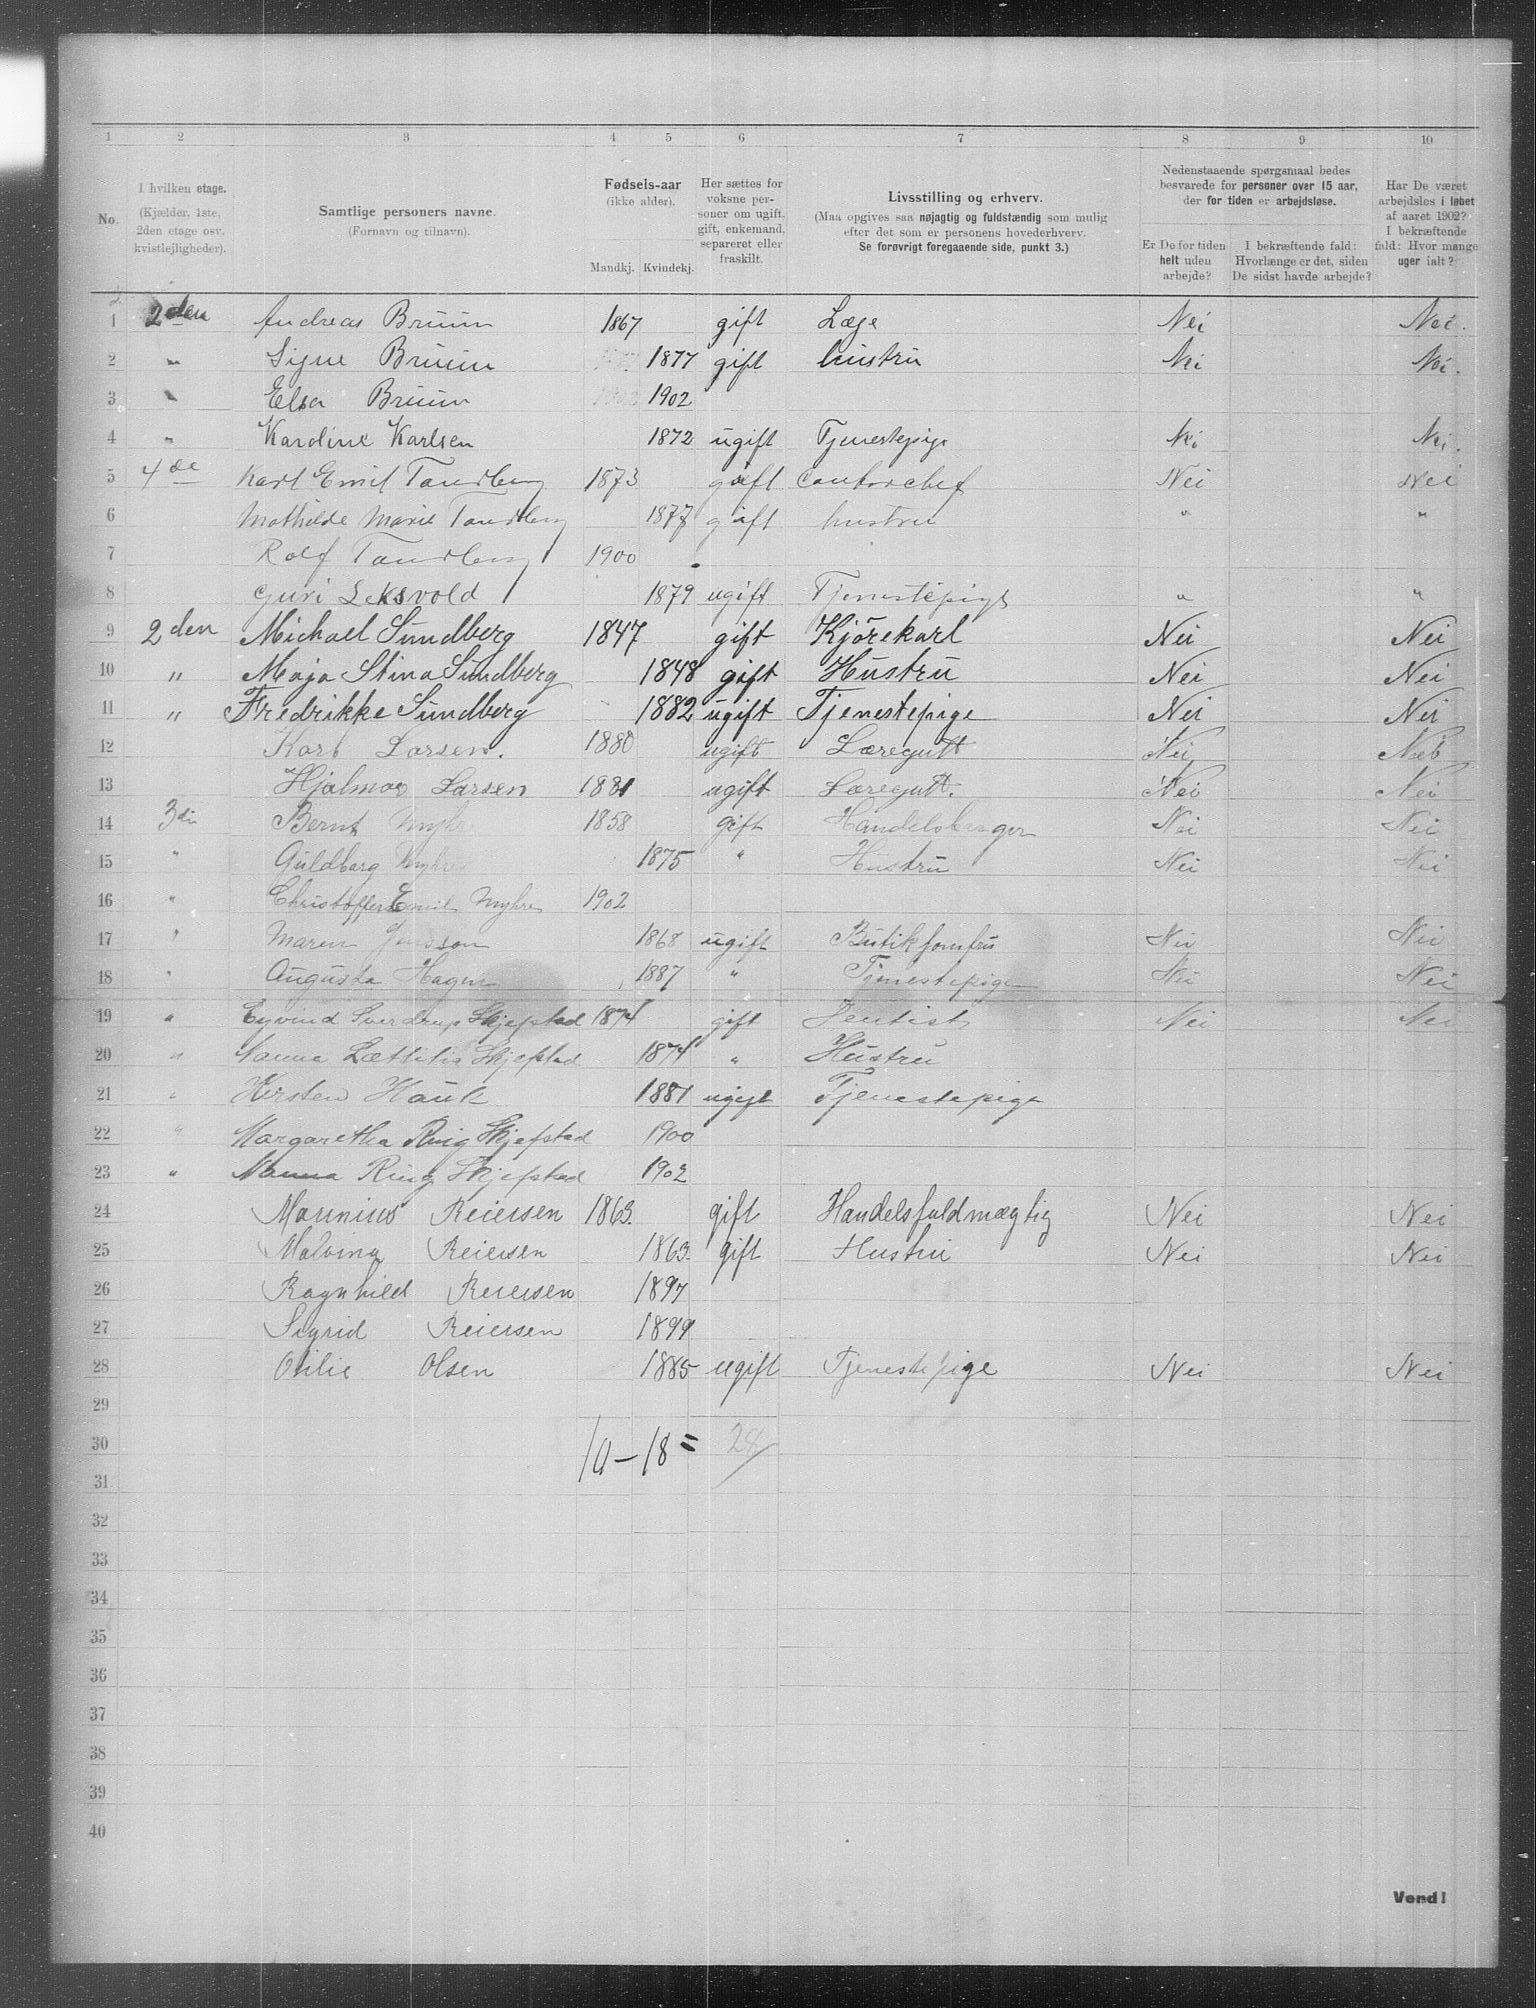 1 2 3 4 5 6 7 8 9 10
No. I hvilken etage. (Kjælder, 1ste, 2den etage osv. kvistlejligheder). Samtlige personers navne. (Fornavn og tilnavn). Fødsels-aar (ikke alder). Mandkj. Kvindekj. Her sættes for voksne personer om ugift, gift, enkemand, separeret eller fraskilt. Livsstilling og erhverv. (Maa opgives saa nøjagtig og fuldstændig som mulig efter det som er personens hovederhverv. Se forøvrigt foregaaende side, punkt 3.) Nedenstaaende spørgsmaal bedes besvarede for personer over 15 aar, der for tiden er arbejdsløse. Er De for tiden helt uden arbejde? I bekræftende fald: Hvorlænge er det, siden De sidst havde arbejde? Har De været arbejdsløs i løbet af aaret 1902? I bekræftende fald: Hvor mange uger ialt?
1 2den Andreas Bruun 1867 gift Læge Nei Nei.
2 " Signe Bruun 1877 gift hustru Nei Nei.
3 " Elsa Bruun 1902
4 " Karoline Karlsen 1872 ugift Tjenestepige Nei Nei.
5 4de Karl Emil Tandberg 1873 gift Contorchef Nei Nei
6 Mathilde Marie Tandberg 1877 gift hustru " "
7 Rolf Tandberg 1900
8 Guri Leksvold 1879 ugift Tjenestepige " "
9 2den Michael Sundberg 1847 gift Kjörekarl Nei Nei
10 " Maja Stina Sundberg 1848 gift Hustru Nei Nei
11 " Fredrikke Sundberg 1882 ugift Tjenestepige Nei Nei
12 Karl Larsen. 1880 ugift Læregutt Nei Nei
13 Hjalmar Larsen 1881 ugift Læregutt. Nei Nei
14 3di Bernt Myhre 1858 gift Handelsborger Nei Nei
15 " Guldborg Myhre 1875 " Hustru Nei Nei
16 " Christoffer Emil Myhre 1902
17 " Maren 1868 ugift Butikjomfru Nei Nei
18 " Augusta Hagen 1887 " Tjenestepige Nei Nei
19 " Eyvind Sverdrup Skjefstad 1874 gift Dentist Nei Nei
20 " Nanna Lættitia Skjefstad 1874 " Hustru
21 " Kirsten Hauk 1881 ugift Tjenestepige
22 " Margaretha Ring Skjefstad 1900
23 " Nanna Ring Skjefstad 1902
24 Maunius Reiersen 1863. gift Handelsfuldmægtig Nei Nei
25 Malvina Reiersen 1863. gift Hustru Nei Nei
26 Ragnhild Reiersen 1897
27 Sigrid Reiersen 1899
28 Otilie Olsen 1885 ugift Tjenestepige Nei Nei
29
30 10-18= 28
31
32
33
34
35
36
37
38
39
40
Vend!